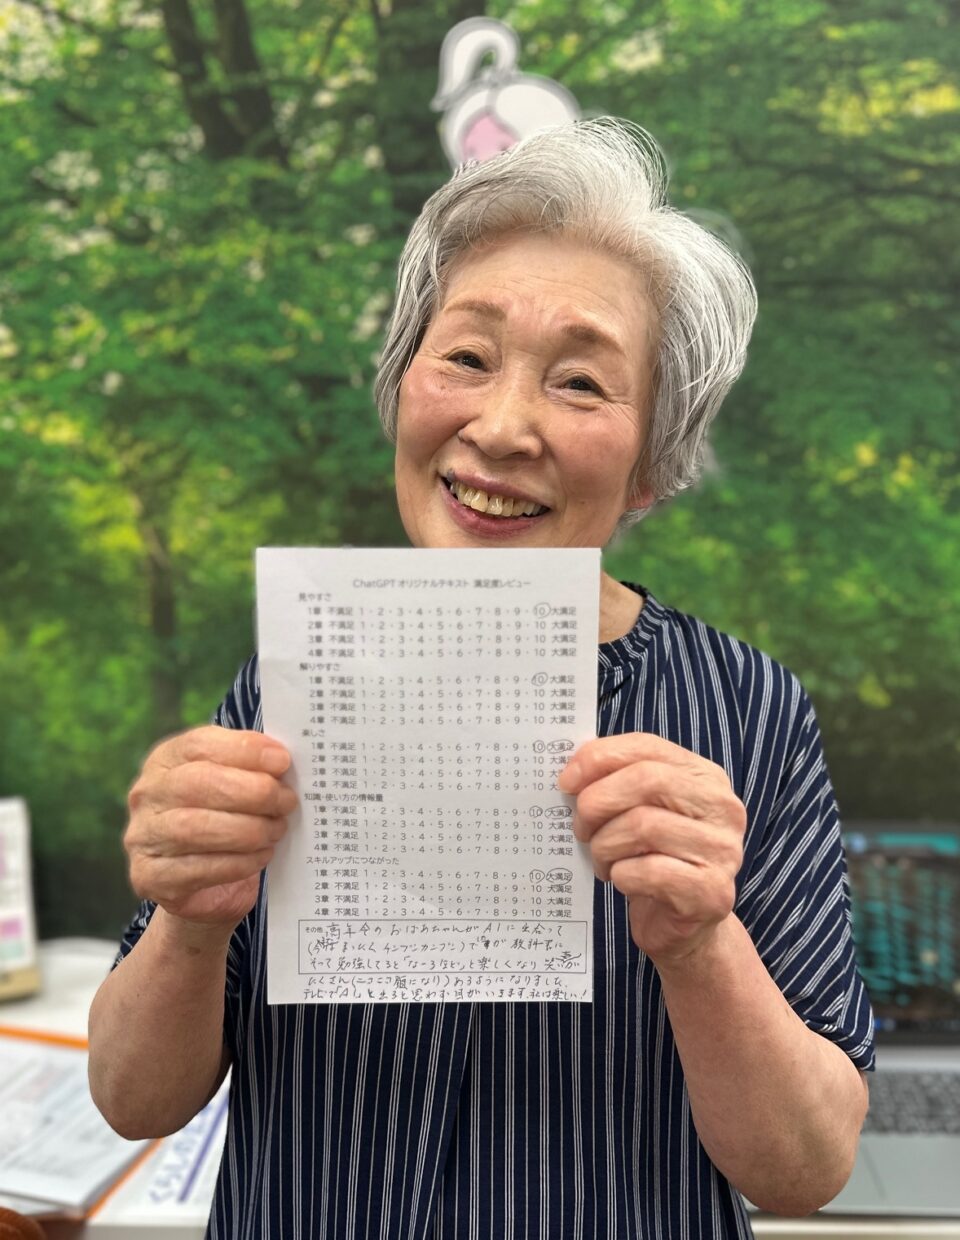 ChatGPT オリジナルテキスト 満足度レビュー
見やすさ
1章 不満足 1・2・3・4・5・6・7・8・9・10 大満足
2章 不満足 1・2・3・4・5・6・7・8・9・10 大満足
3章 不満足 1・2・3・4・5・6・7・8・9・10 大満足
4章 不満足 1・2・3・4・5・6・7・8・9・10 大満足
解りやすさ
1章 不満足 1・2・3・4・5・6・7・8・9・10 大満足
2章 不満足 1・2・3・4・5・6・7・8・9・10 大満足
3章 不満足 1・2・3・4・5・6・7・8・9・10 大満足
4章 不満足 1・2・3・4・5・6・7・8・9・10 大満足
楽しさ
1章 不満足 1・2・3・4・5・6・7・8・9・10 大満足
2章 不満足 1・2・3・4・5・6・7・8・9・10 大
3章 不満足 1・2・3・4・5・6・7・8・9・10 大
4章 不満足 1・2・3・4・5・6・7・8・9・10 大
知識・使い方の情報量
1章 不満足 1・2・3・4・5・6・7・8・9・10 大満足
2章 不満足 1・2・3・4・5・6・7・8・9・10 大満足
3章 不満足 1・2・3・4・5・6・7・8・9・10 大満足
4章 不満足 1・2・3・4・5・6・7・8・9・10 大満足
スキルアップにつながった
1章 不満足 1・2・3・4・5・6・7・8・9・10 大満足
2章 不満足 1・2・3・4・5・6・7・8・9・10 大満足
3章 不満足 1・2・3・4・5・6・7・8・9・10 大満足
4章 不満足 1・2・3・4・5・6・7・8・9・10 大満足
その他 高年令のおばあちゃんがAIに出合って
まったく チンプンカンプン)で が 教科書に
そって勉強してると「なーるほど」と楽しくなり 笑いが
たくさん(ニコニコ顔になり)あるようになりました
テレビで「AI」と出ると思わず耳がいきます。私は楽しい!
くらしの